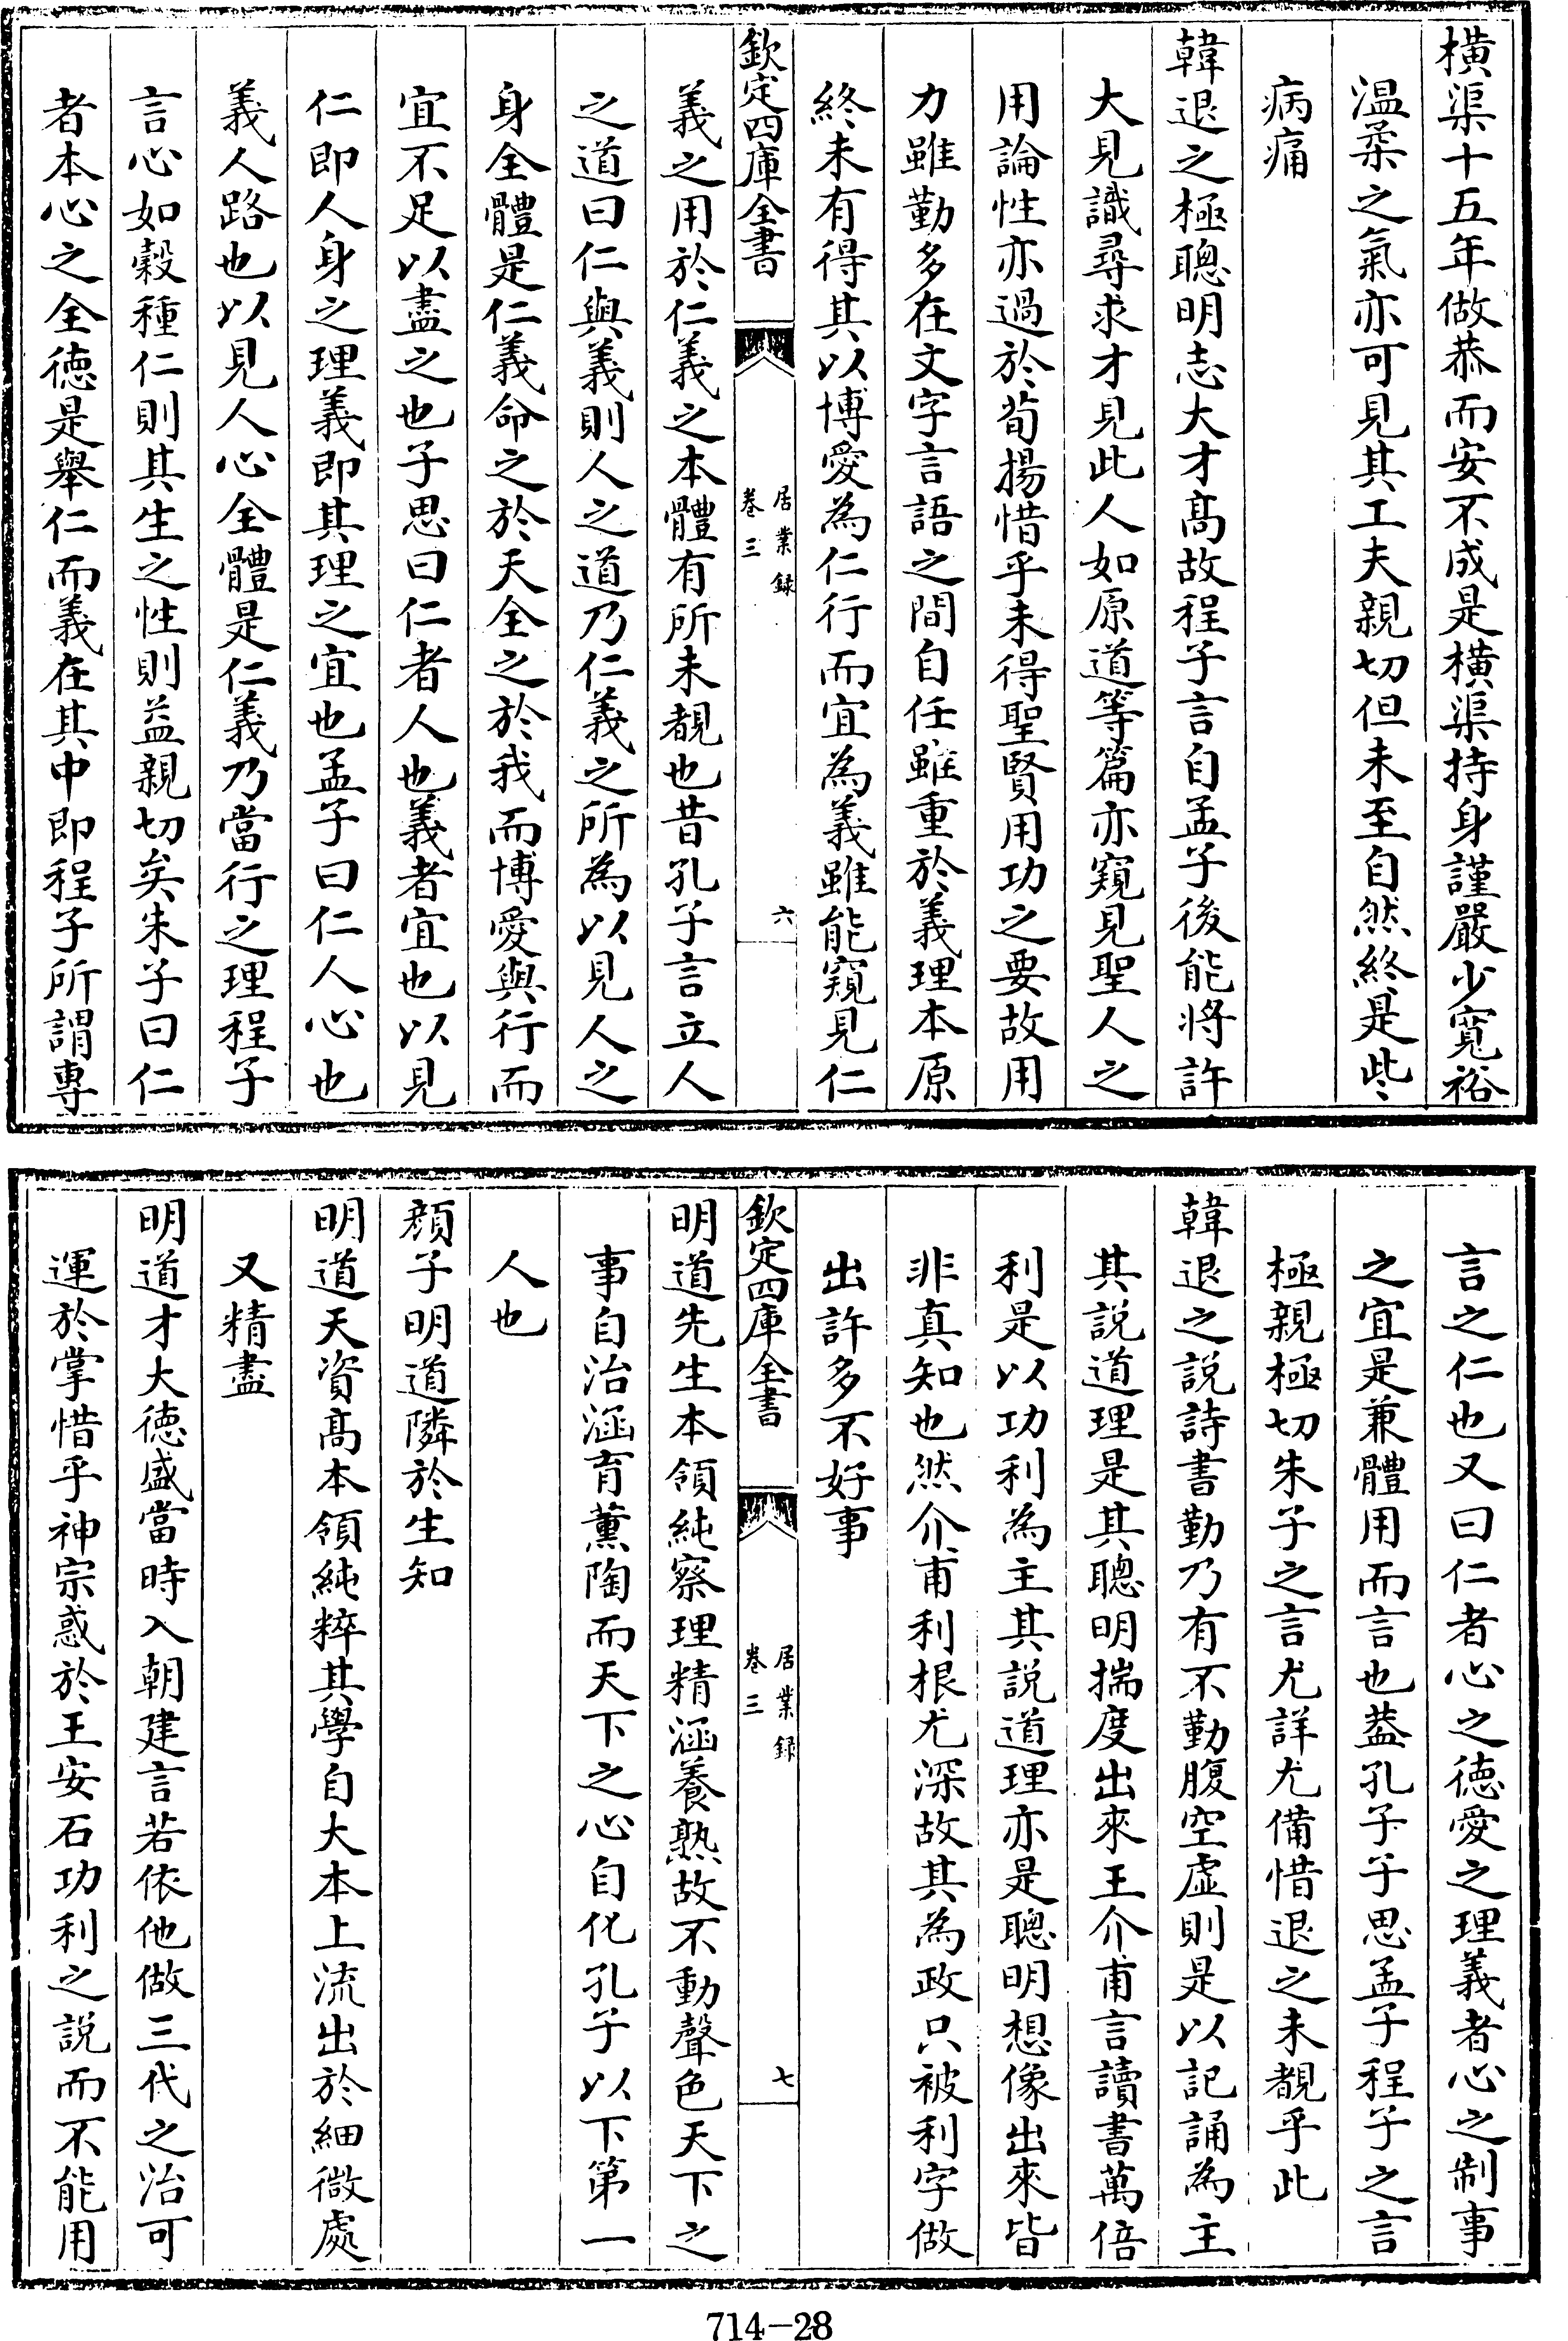 橫渠十五年做恭而安不成是橫渠持身謹嚴少寬裕
溫柔之氣亦可見其工夫親切但未至自然終是此
病痛
韓退之極聰明志大才髙故程子言自孟子後能將許
大見識尋求才見此人如原道等篇亦窺見聖人之
用論性亦過於荀揚惜乎未得聖賢用功之要故用
力雖勤多在文字言語之間自任雖重於義理本原
終未有得其以博愛為仁行而宜為義雖能窺見仁
欽定四庫全書
居業録
卷三
六
義之用於仁義之本體有所未覩也昔孔子言立人
之道曰仁與義則人之道乃仁義之所為以見人之
身全體是仁義命之於天全之於我而博愛與行而
宜不足以盡之也子思曰仁者人也義者宜也以見
仁即人身之理義即其理之宜也孟子曰仁人心也
義人路也以見人心全體是仁義乃當行之理程子
言心如穀種仁則其生之性則益親切矣朱子曰仁
者本心之全德是舉仁而義在其中即程子所謂專
言之仁也又曰仁者心之德愛之理義者心之制事
之宜是兼體用而言也葢孔子子思孟子程子之言
極親極切朱子之言尤詳尤備惜退之未覩乎此
韓退之説詩書勤乃有不勤腹空虚則是以記誦為主
其説道理是其聰明揣度出來王介甫言讀書萬倍
利是以功利為主其説道理亦是聰明想像出來皆
非真知也然介甫利根尤深故其為政只被利字做
出許多不好事
欽定四庫全書
居業録
卷三
七
明道先生本領純察理精涵養熟故不動聲色天下之
事自治涵育薰陶而天下之心自化孔子以下第一
人也
顔子明道隣於生知
明道天資髙本領純粹其學自大本上流出於細微處
又精盡
明道才大德盛當時入朝建言若依他做三代之治可
運於掌惜乎神宗惑於王安石功利之説而不能用
714-28